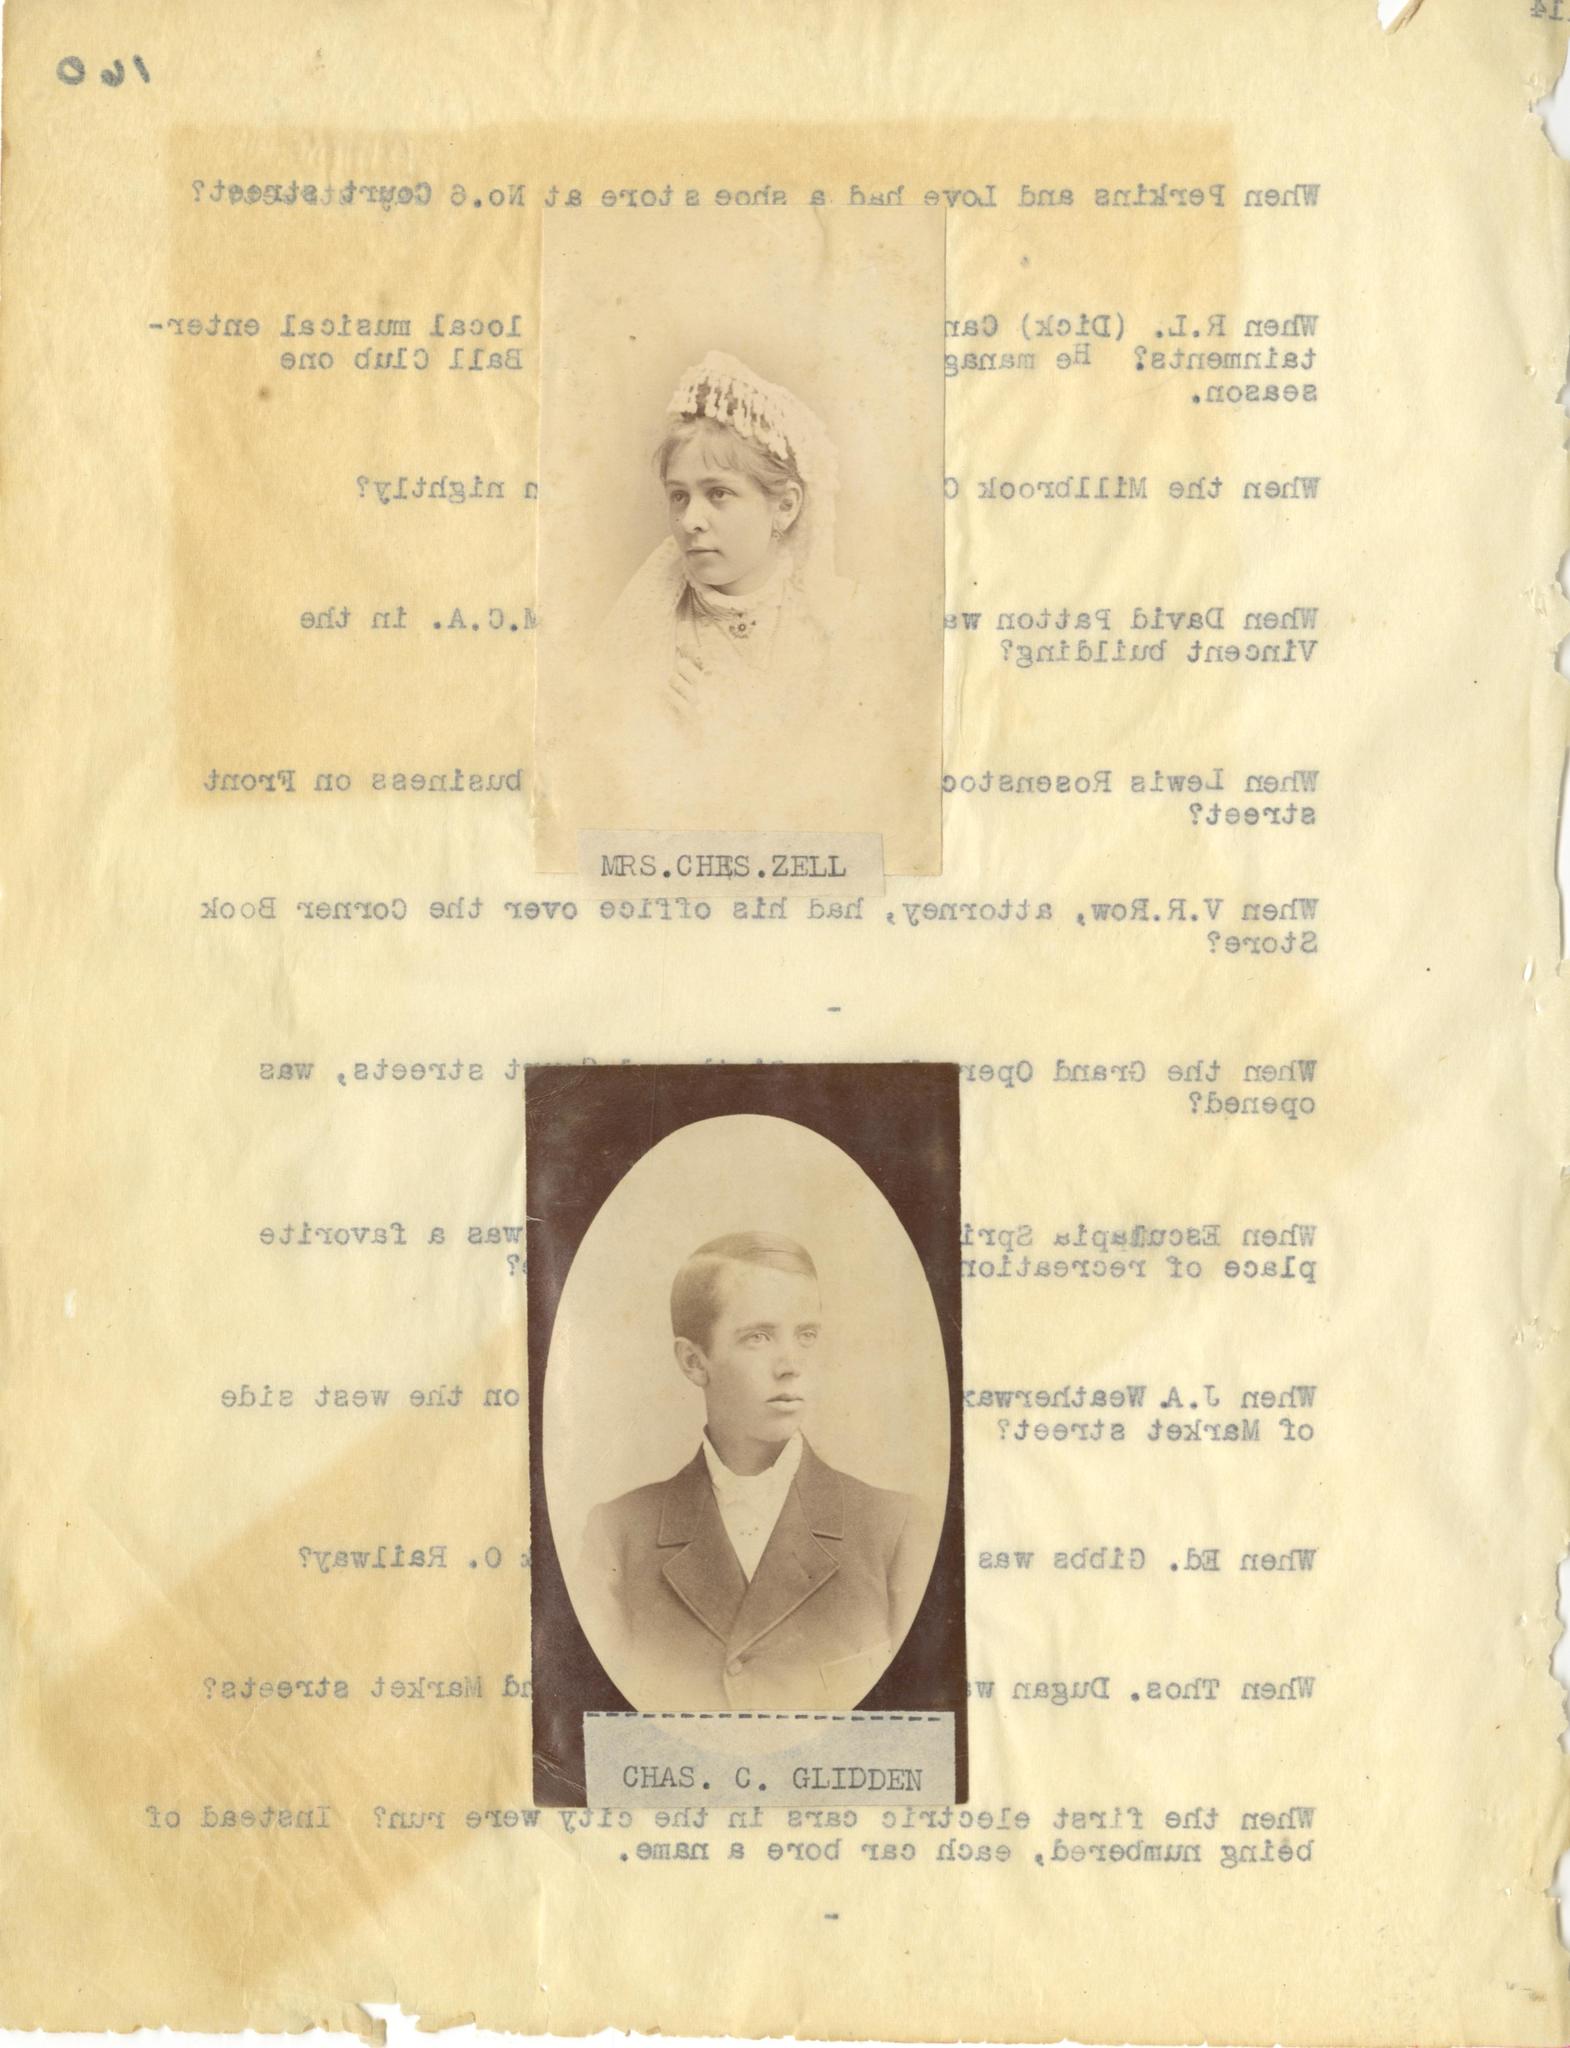 160
14
When Perkins and Love had a shoe store at No.6 Court street?
When R.L. (Dick) local musical enter-
tainments? He Ball Club one
season.
When the Millbrook nightly?
When David Patton M.C.A. in the
Vincent building?
When Lewis business on Front
street?
MRS.CHES.ZELL
When V.R.Row, attorney, had his office over the Corner Book
Store?
-
When the Grand streets, was
opened?
When Esculapia was a favorite
place of
When J.A. on the west side
of Market street?
When Ed. Gibbs was O. Railway?
When Thos. Dugan Market streets?
CHAS. C. GLIDDEN
When the first electric cars in the city were run? Instead of
being numbered, each car bore a name.
-